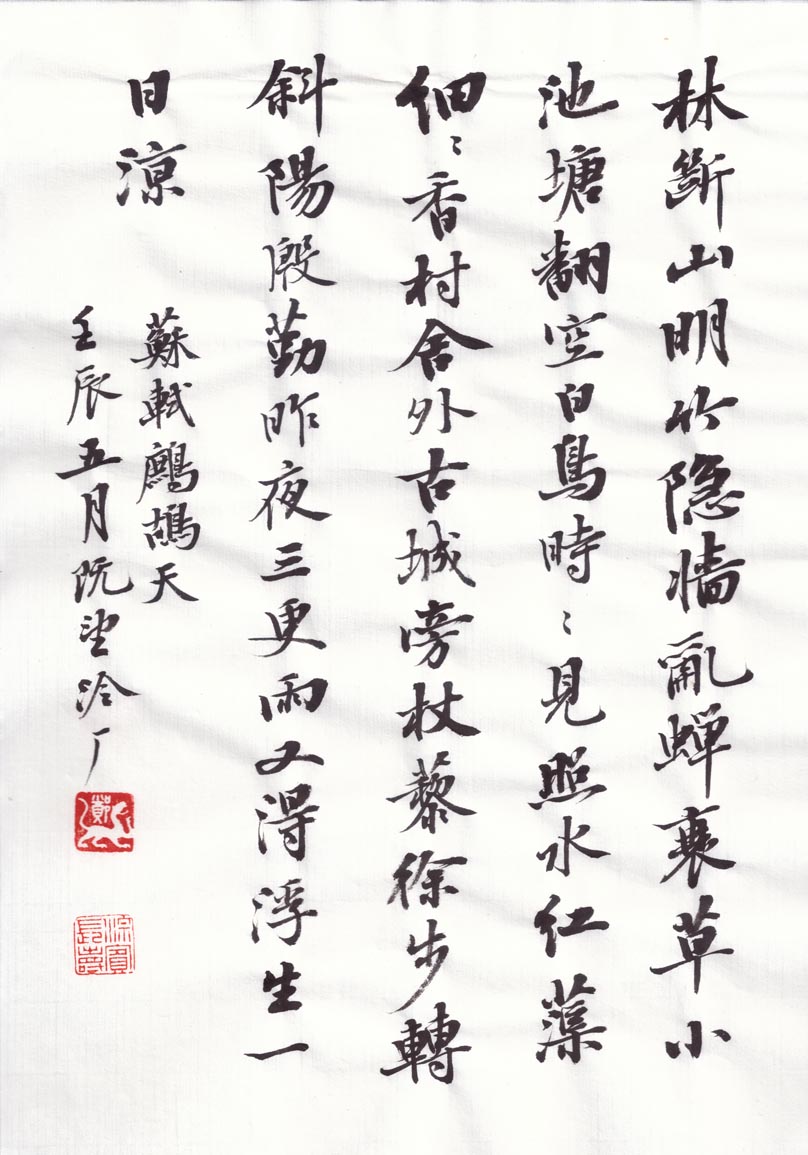 林断山明竹隐墙亂蝉衰草小
池塘翻空白鳥時〻見照水紅蕖
細〻香村舍外古城旁杖藜徐步轉
斜陽殷勤昨夜三更雨又得浮生一
日涼
蘇軾鷓鴣天
壬辰五月阮望冷厂